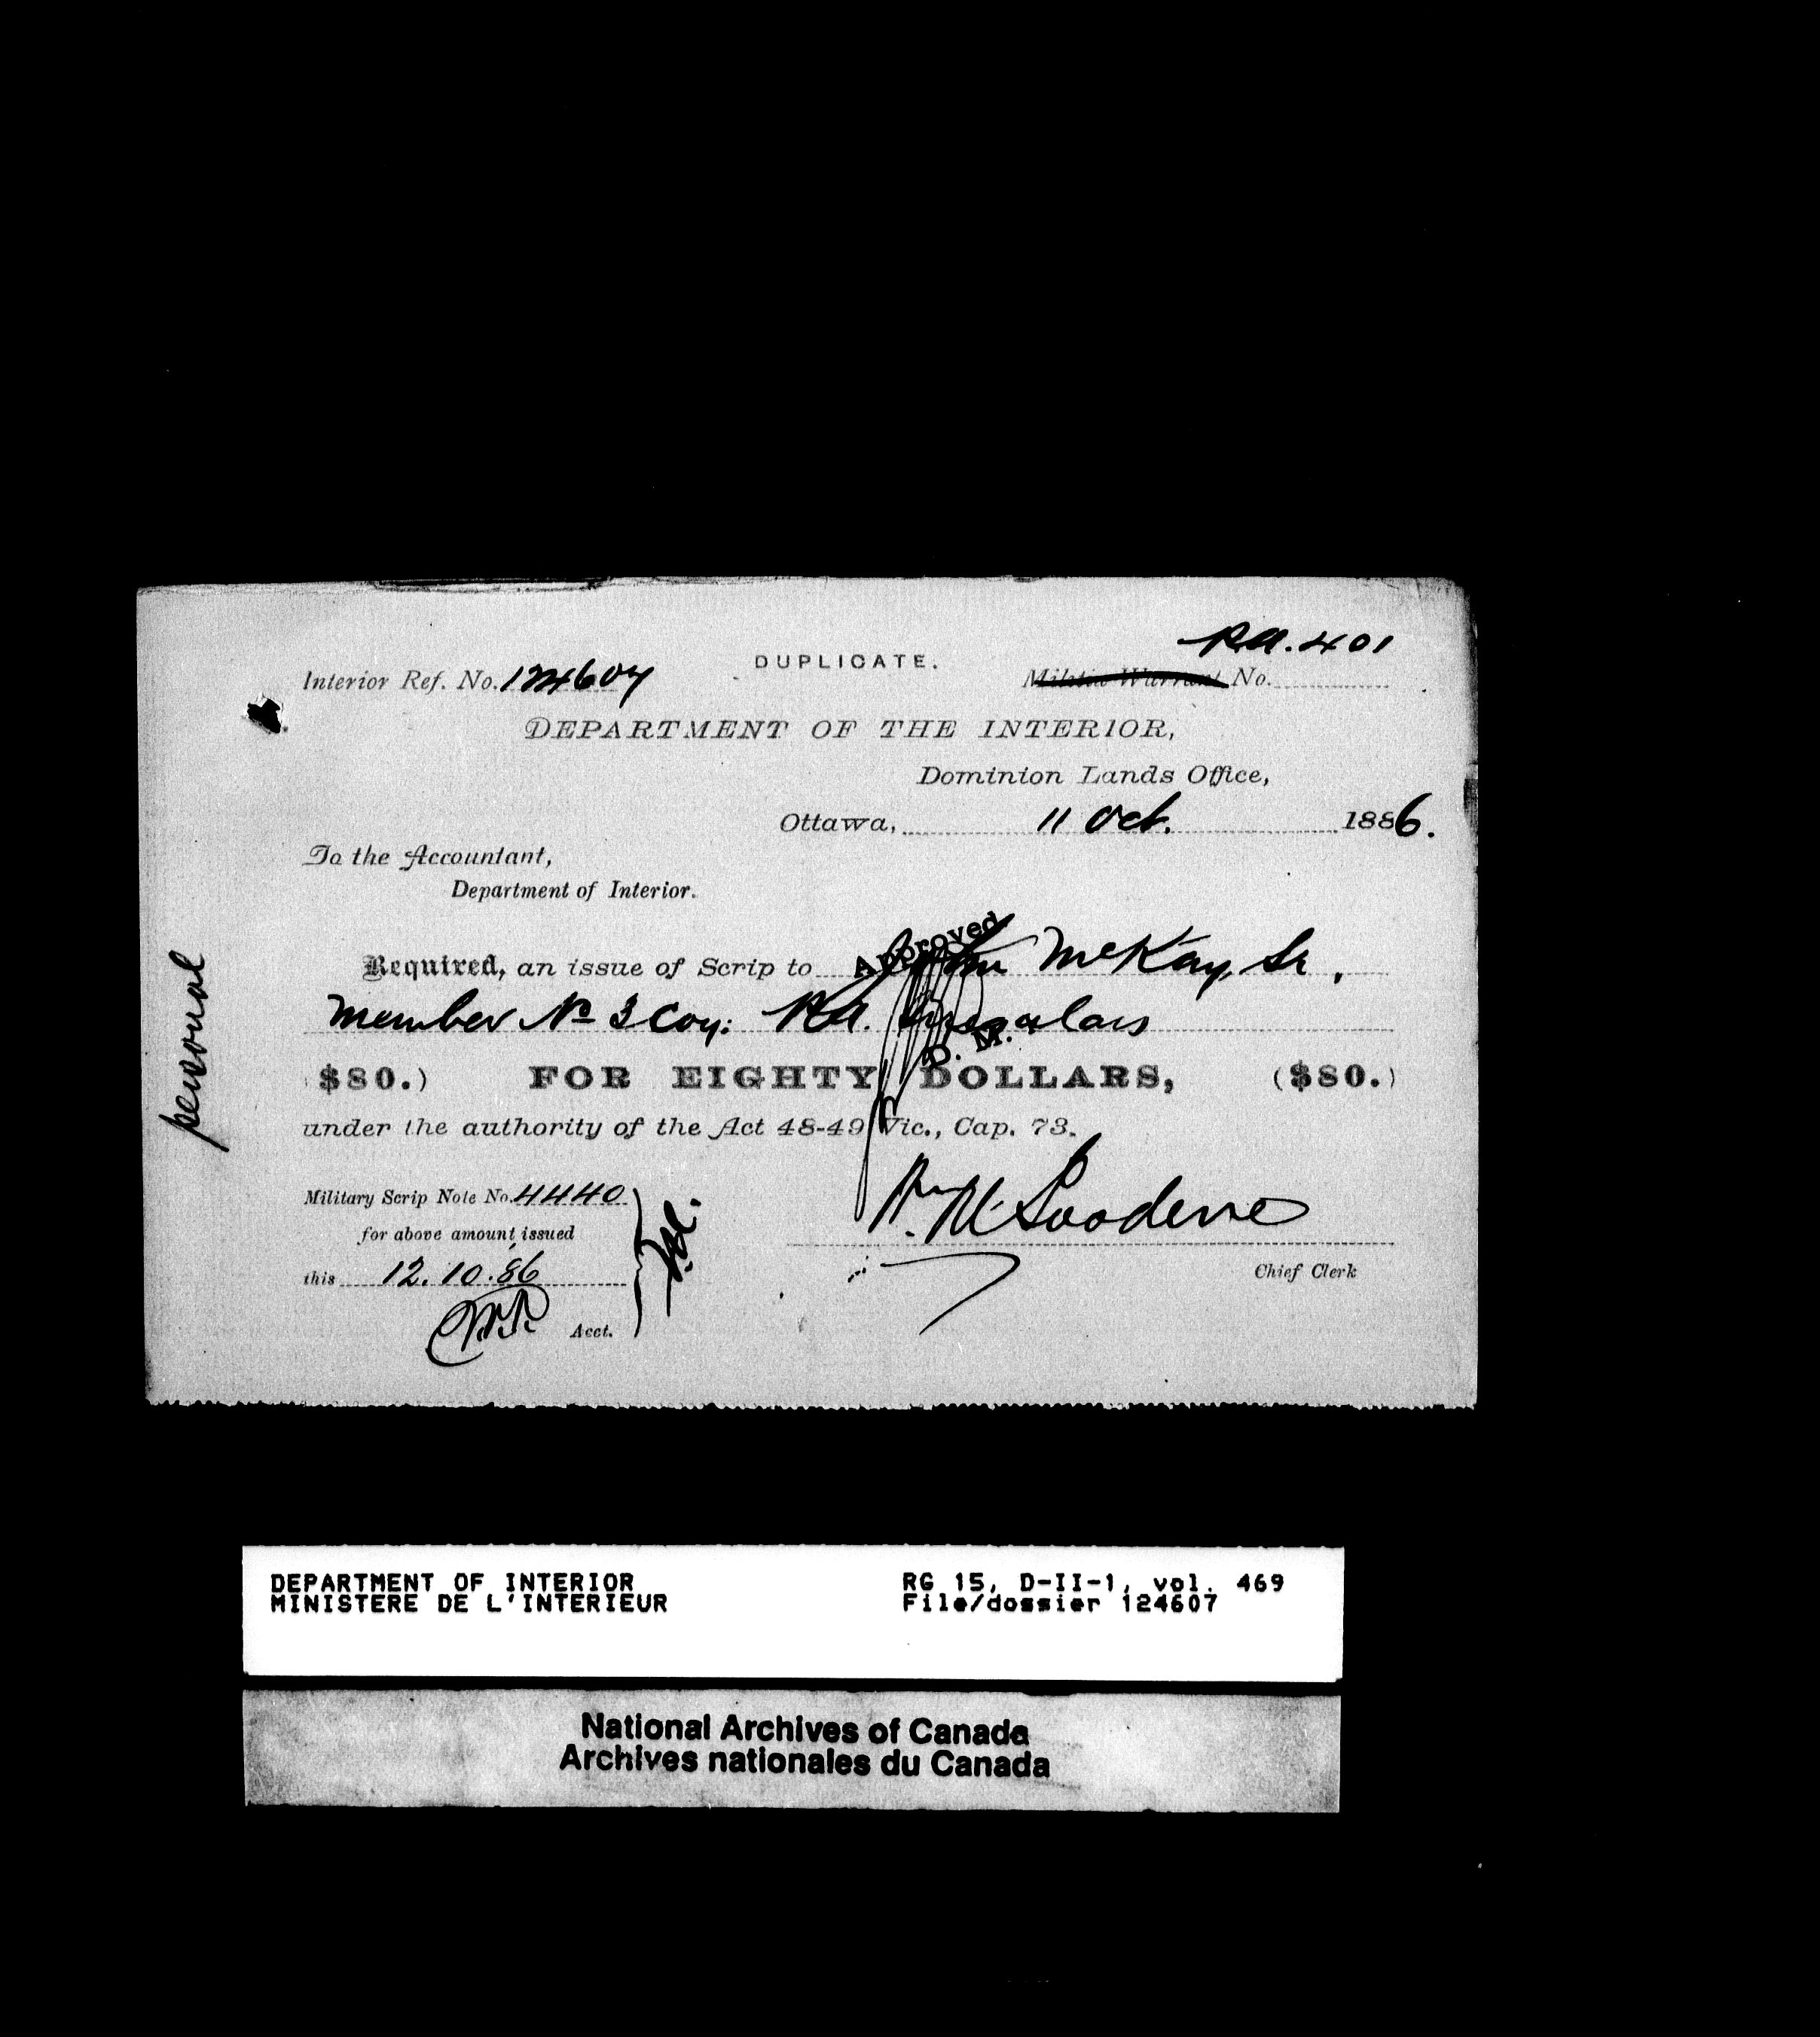 P.A. 401
Interior Ref. No. 124607 DUPLICATE. Militia Warrant No.
DEPARTMENT OF THE INTERIOR,
Dominion Lands Office,
Ottawa, 11 Oct. 1886.
To the Accountant,
Department of Interior.
Approved
Required, an issue of Scrip to John McKay, Sr.,
member No 3 Coy: P.A. Irregulars
D. M.
$80.) FOR EIGHTY DOLLARS, ($80.)
under the authority of the Act 48-49 Vic., Cap. 73.
personal
Military Scrip Note No. 4440
for above amount issued
this 12.10.86
Acct.
Chief Clerk
DEPARTMENT OF INTERIOR RG 15, D-II-1, vol. 469
MINISTERE DE L'INTERIEUR File/dossier 124607
National Archives of Canada
Archives nationales du Canada